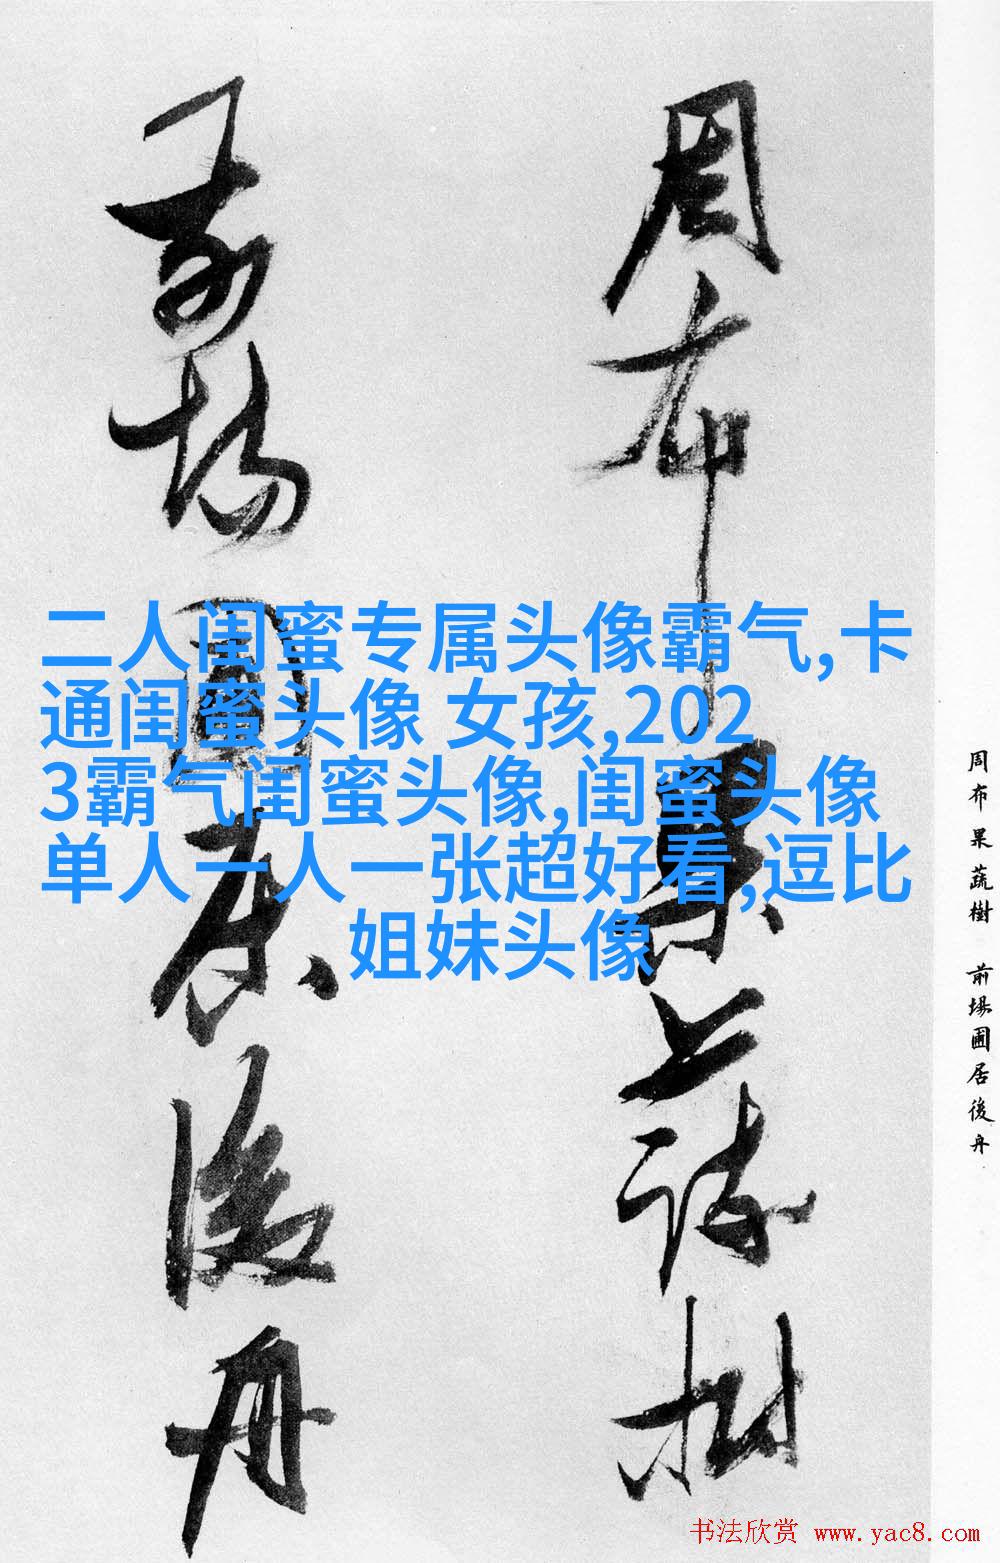 周布果蔬樹
前場圃居後舟
二人闺蜜专属头像霸气,卡
通闺蜜头像 女孩,202
3霸气闺蜜头像,闺蜜头像
单人一人一张超好看,逗比
姐妹头像
周布果蔬樹 前場圃居後舟
书法欣赏 www.yac8.com